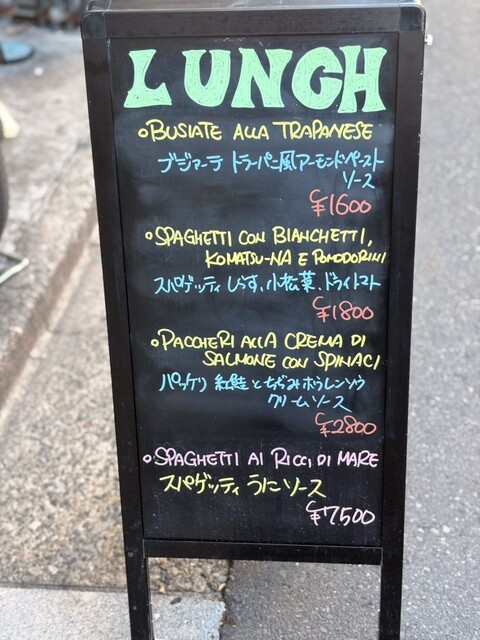 LUNCH
BUSIATE ALLA TRAPANESE
ブジアーテ トラーパニ風アーモンドペースト
ソース
¥1600
SPAGHETTI CON BIANCHETTI,
KOMATSU-NA E POMODORINI
スパゲッティ しらす、小松菜、ドライトマト
¥1800
PACCHERI ALLA CREMA DI
SALMONE CON SPINACI
パッケリ 紅鮭とちぢみホウレンソウ
クリームソース
¥2800
SPAGHETTI AI RICCI DI MARE
スパゲッティ うにソース
¥7500